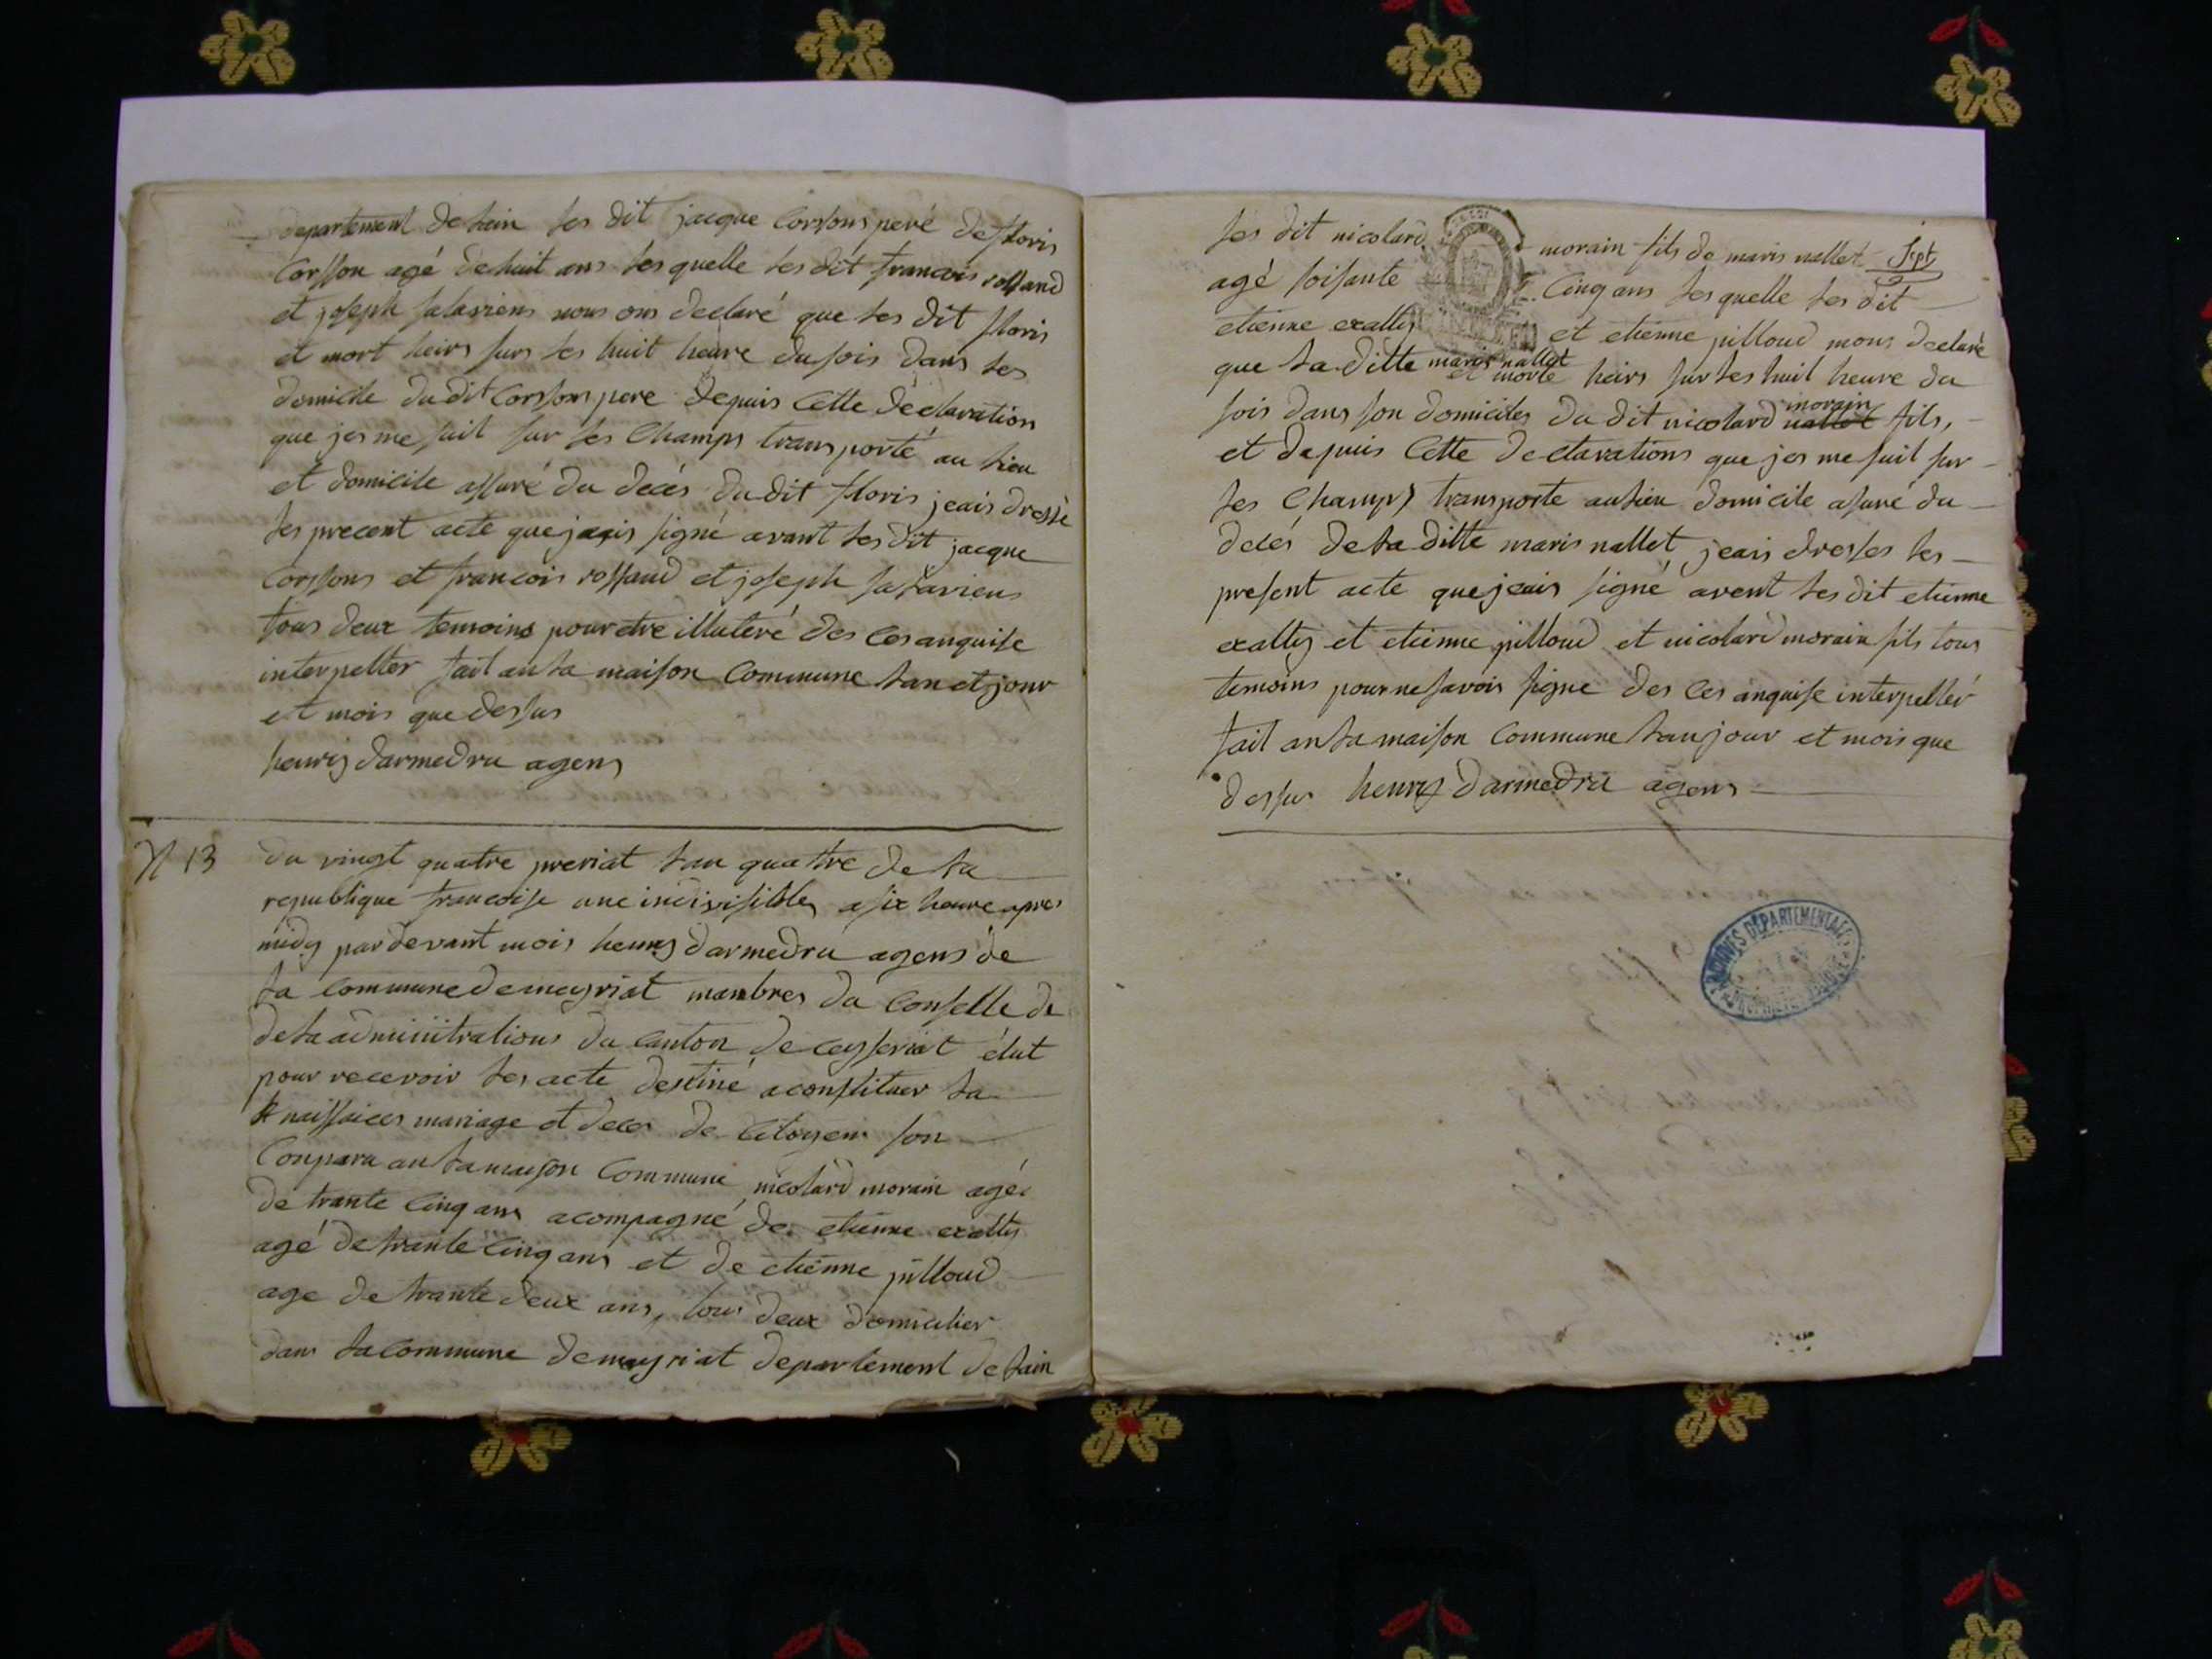 departement de lain les dit jacque Corssons peré de floris
Corsson agé de huit ans les quelle les dit francois rossand
et joseph salaviens nous ons declaré que les dit floris
et mort heirs surs les huit heure du sois dans les
domicile du dit Corssons pere depuis Cette déclaration
que jes me suit sur les Champs transporté au lieu
et domicile assuré du decés du dit floris jeais dressé
les precent acte que jeais signé avant les dit jacque
Corssons et francois rossand et joseph salaviens
tous deux temoins pour etre illuteré des ces anquise
interpeller fait an la maison Commune lan et jour
et mois que dessus
henrij darmedru agens
N 13 du vingt quatre preriat lan quattre de la
republique francoise une indivisibles a six heure apres
midy par devant mois henrij darmedru agens de
la commune de meyriat manbres du Conselle de
de la adminitrations du Canton de ceyseriat élut
pour recevoir les acte destiné a constituer la
naissaices mariage et deces de Citoyens son
Conparu an la maison Commune nicolard morain agé
de trante Cinq ans acompagné de etienne exallij
agé de trante Cinq ans et de etiénne pilloud
age de trante deux ans, tous deux domicilier
dans la commune de meyriat departement de lain
Sept
les dit nicolard morain fils de maris nallet
agé soisante Cinq ans les quelle les dit
etienne exallij et etienne pilloud mous declaré
que la ditte maris nallet et morte heirs sur les huit heure du
sois dans son domiciles du dit nicolard nallet morain fils,
et depuis Cette declarations que jes me suit sur
les Champs transporte au lieu domicile asuré du
decés de la ditte maris nallet jeais dresses les
present acte que jeais signé avent les dit etienne
exallij et etienne pilloud et nicolard morain fils tous
temoins pour ne savois signe des ces anquise interpellér
fait an la maison Commune lan jour et mois que
dessus henrij darmedru agens
ARCHIVES DÉPARTEMENTALES